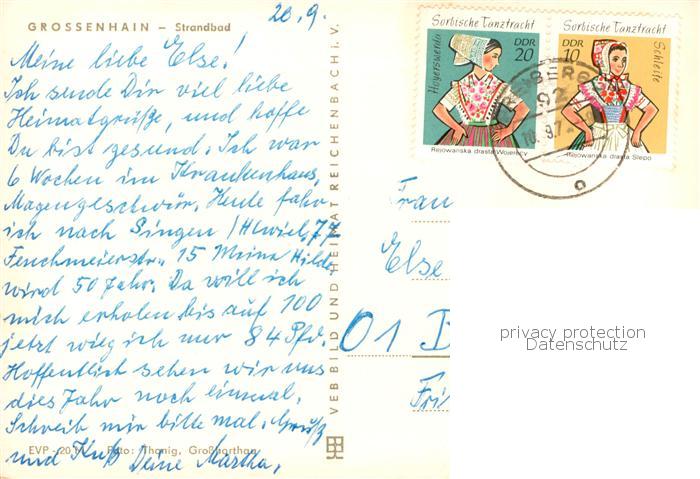 GROSSENHAIN – Strandbad
20.9.
Meine liebe Else!
Ich sende Dir viel liebe
Heimatgrüße, und hoffe
Du bist gesund. Ich war
6 Wochen im Krankenhaus,
Magengeschwür. Heute fahr
ich nach Singen /Htwiel, 77
str. 15 Meine Hilde
wird 50 Jahr. Da will ich
mich erholen bis auf 100
jetzt wieg ich nur 84 Pfd.
Hoffentlich sehen wir uns
dies Jahr noch einmal,
Schreib mir bitte mal. Gruß
und Kuß Deine Martha.
EVP -20 Foto: Thonig, Großharthau
VEB BILD UND HEIMAT REICHENBACH i. V.
Sorbische Tanztracht
Hoyerswerda
DDR
20
Rejowanska drasta Wojerecy
Sorbische Tanztracht
DDR
10
Schleife
Rejowanska drasta Slepo
Frau
Else
01 D
privacy protection
Datenschutz